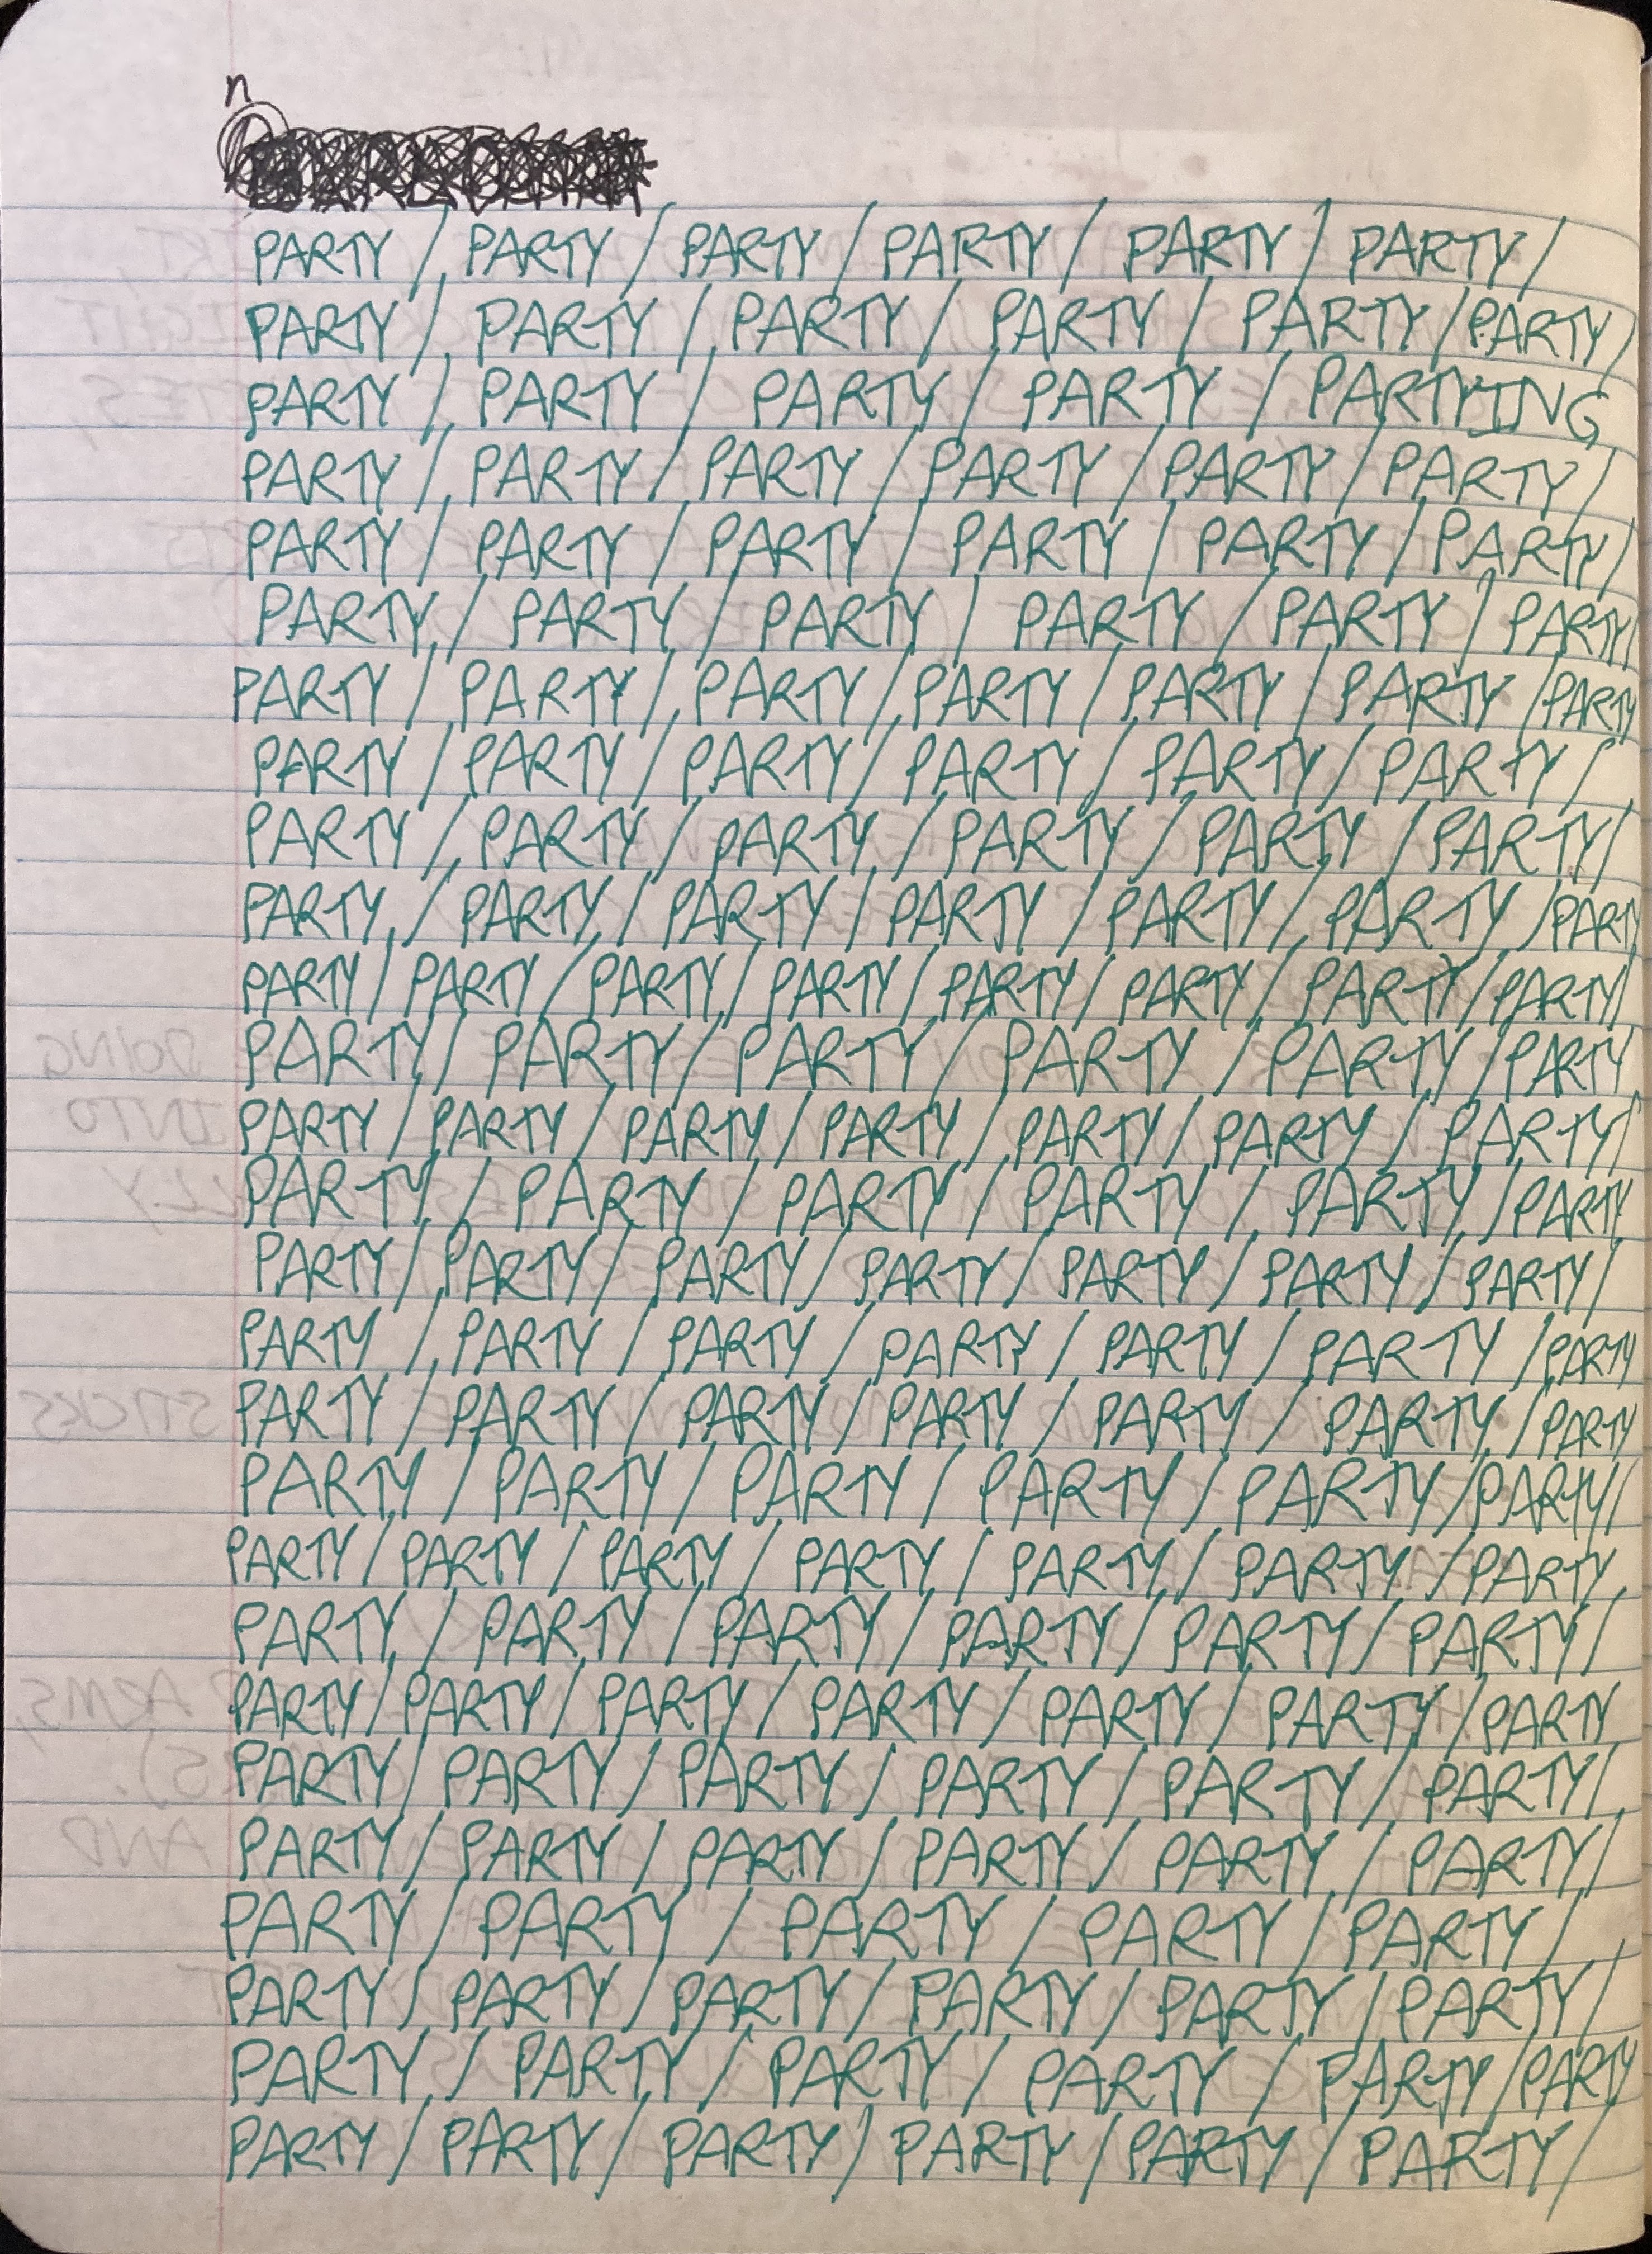 n
PARTY / PARTY / PARTY / PARTY / PARTY / PARTY /
PARTY / PARTY / PARTY / PARTY / PARTY / PARTY /
PARTY / PARTY / PARTY / PARTY / PARTYING
PARTY / PARTY / PARTY / PARTY / PARTY / PARTY /
PARTY / PARTY / PARTY / PARTY / PARTY / PARTY /
PARTY / PARTY / PARTY / PARTY / PARTY / PARTY /
PARTY / PARTY / PARTY / PARTY / PARTY / PARTY / PARTY
PARTY / PARTY / PARTY / PARTY / PARTY / PARTY /
PARTY / PARTY / PARTY / PARTY / PARTY / PARTY /
PARTY / PARTY / PARTY / PARTY / PARTY / PARTY / PARTY
PARTY / PARTY / PARTY / PARTY / PARTY / PARTY / PARTY / PARTY /
PARTY / PARTY / PARTY / PARTY / PARTY / PARTY
PARTY / PARTY / PARTY / PARTY / PARTY / PARTY / PARTY /
PARTY / PARTY / PARTY / PARTY / PARTY / PARTY
PARTY / PARTY / PARTY / PARTY / PARTY / PARTY / PARTY /
PARTY / PARTY / PARTY / PARTY / PARTY / PARTY / PARTY
PARTY / PARTY / PARTY / PARTY / PARTY / PARTY / PARTY
PARTY / PARTY / PARTY / PARTY / PARTY / PARTY /
PARTY / PARTY / PARTY / PARTY / PARTY / PARTY / PARTY
PARTY / PARTY / PARTY / PARTY / PARTY / PARTY /
PARTY / PARTY / PARTY / PARTY / PARTY / PARTY / PARTY
PARTY / PARTY / PARTY / PARTY / PARTY / PARTY /
PARTY / PARTY / PARTY / PARTY / PARTY / PARTY /
PARTY / PARTY / PARTY / PARTY / PARTY /
PARTY / PARTY / PARTY / PARTY / PARTY / PARTY /
PARTY / PARTY / PARTY / PARTY / PARTY / PARTY
PARTY / PARTY / PARTY / PARTY / PARTY / PARTY /